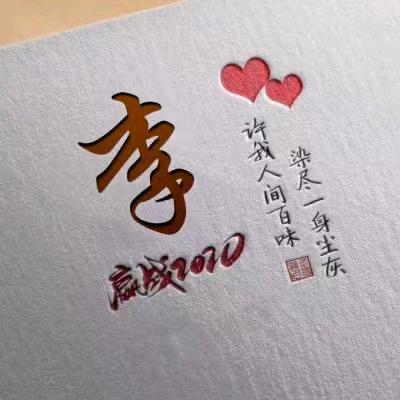 李
赢战2020
染尽一身尘灰
许我人间百味